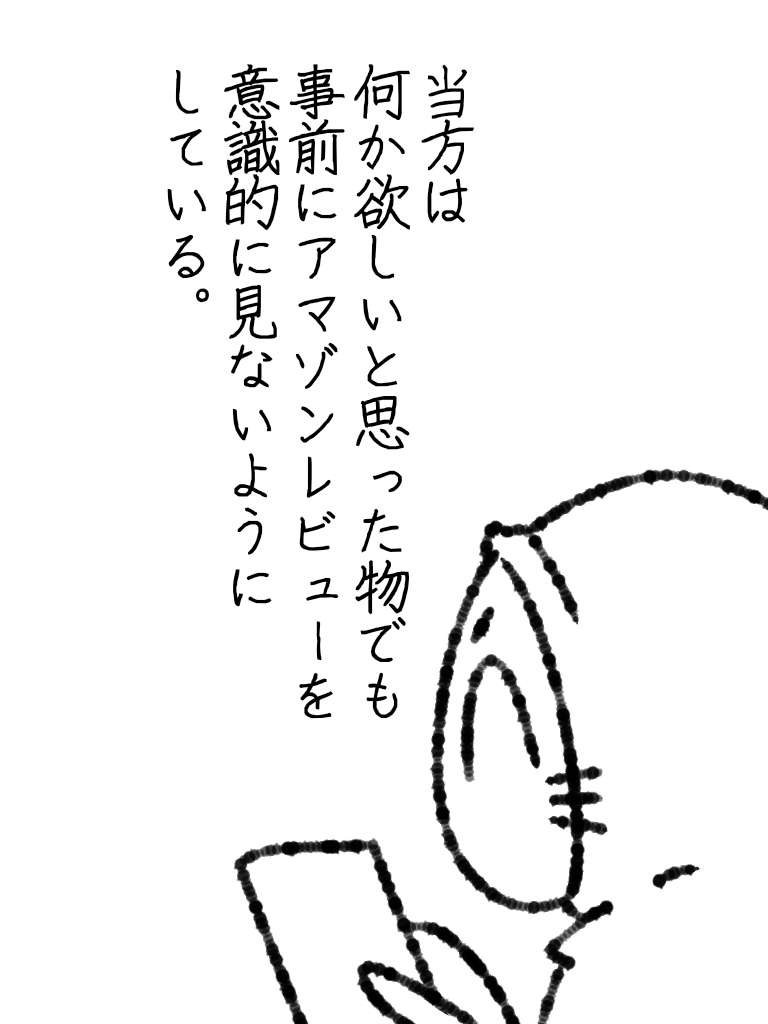 当方は
何か欲しいと思った物でも
事前にアマゾンレビューを
意識的に見ないように
している。